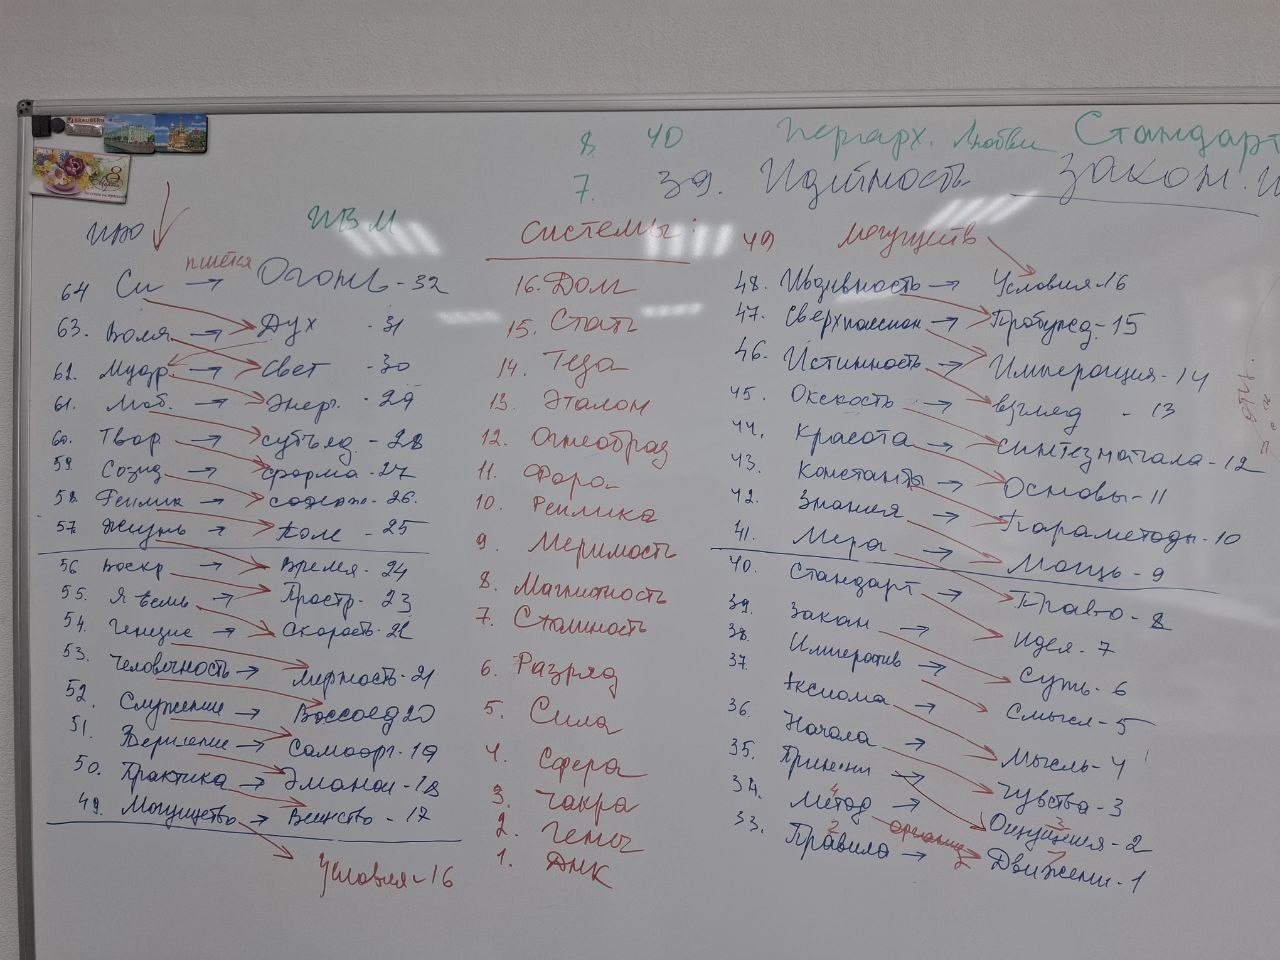 BRAUBERG
8
8. 40 Иерарх. Любви Стандарт
7. 39. Идейность Закон.
ИВО
ИВМ
64 Си → Огонь - 32
63. Воля → Дух - 31
62. Мудр. → Свет - 30
61. Люб. Энерг. - 29
60. Твор → субъяд. - 28
59. Созид → форма - 27
58. Реплик → содерж - 26.
57. Жизнь → Поле - 25
56 Воскр → Время - 24
55. Я есмь → Простр. - 23
54. Генезис → Скорость - 22
53. Человечность → Мерность - 21
52. Служение → Воссоед 20
51. Вершение → Самоорг. - 19
50. Практика → Эманац - 18
49. Могущество → Вещество - 17
Условия - 16
Системы:
16. Долг
15. Стать
14. Теза
13. Эталон
12. Огнеобраз
11. Фора
10. Реплика
9. Меримость
8. Магнитность
7. Станность
6. Разряд
5. Сила
4. Сфера
3. Чакра
2. Гены
1. ДНК
49 Могуществ
48. Извивность → Условия - 16
47. Сверхпассион → Пробужд. - 15
46. Истинность → Империция - 14
45. Окскость взгляд - 13
44. Красота → синтезначала - 12
43. Константы → Основы - 11
42. Знания Параметоды - 10
41. Мера → Мощь - 9
40. Стандарт Право - 8
39. Закон Идея - 7
38. Императив → Суть - 6
37. Аксиома Смысл - 5
36. Начала → Мысль - 4
35. Принцип → Чувства - 3
34. Метод → Ощущения - 2
33. Правила → Движени - 1
4
3
2